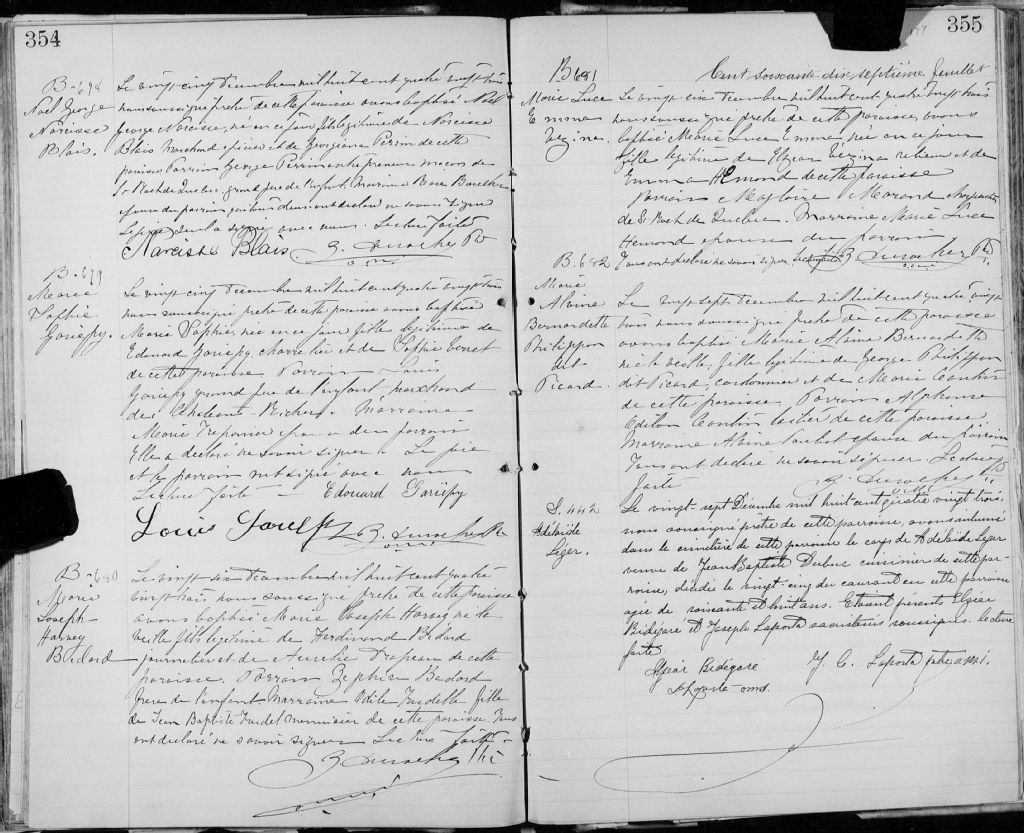 354
B-678
Noel George
Narcisse
Blais.
Le vingt cinq Décembre mil huit cent quatre vingt trois
nous soussigné prêtre de cette paroisse avons baptisé Noel
George Narcisse, né en ce jour fils légitime de Narcisse
Blais Marchand épicier et de Georgiana Perrin de cette
paroisse Parrain George Perrin entrepreneur maçon de
St Roch de Québec, grand père de l'enfant, Marraine Boucher
épouse du parrain qui ont déclaré ne savoir signer
Le père seul a signé avec nous. Lecture faite
Narcisse Blais B. Desrochers Ptre
o.m.i.
B-679
Marie
Sophie
Gariépy.
Le vingt cinq Décembre mil huit cent quatre vingt trois
nous soussigné prêtre de cette paroisse avons baptisé
Marie Sophie, née en ce jour fille légitime de
Edouard Gariépy, charretier et de Sophie Verret
de cette paroisse Parrain Louis
Gariépy grand père de l'enfant marchand
du Chateau Richer. Marraine
Marie Trepanier épouse du parrain
Elle a déclaré ne savoir signer. Le père
et le parrain ont signé avec nous
Lecture faite - Edouard Gariepy
Louis Gariepy B. Desrochers Ptre
o.m.i.
B-680
Marie
Joseph-
Harvey
Bédard
Le vingt six Décembre mil huit cent quatre
vingt trois nous soussigné prêtre de cette paroisse
avons baptisé Marie Joseph Harvey né la
veille fils légitime de Ferdinand Bédard
journalier et de Aurelie Drapeau de cette
paroisse. Parrain Zephirin Bédard
frère de l'enfant Marraine Odile Trudelle fille
de Jean Baptiste Trudel menuisier de cette paroisse Tous
ont déclaré ne savoir signer Lecture faite
B Desrochers Ptre
o.m.i.
355
Cent soixante dix septième feuillet
B 681
Marie Luce
Emma
Vézina.
Le vingt six Décembre mil huit cent quatre vingt trois
nous soussigné prêtre de cette paroisse, avons
baptisé Marie Luce Emma, née en ce jour
fille légitime de Elzear Vézina et de
Emma Hémond de cette paroisse
Parrain Magloire Morand charpentier
de St Roch de Québec. Marraine Marie Luce
Hémond épouse du parrain
Tous ont déclaré ne savoir signer lecture faite B. Desrochers Ptre
o.m.i.
B. 682
Marie
Albine
Bernardette
Philippon
dit
Picard.
Le vingt sept Décembre mil huit cent quatre vingt
trois nous soussigné prêtre de cette paroisse
avons baptisé Marie Albine Bernardette
née la veille, fille légitime de George Philippon
dit Picard, cordonnier et de Marie Cantin
de cette paroisse Parrain Alphonse
Odilon Cantin laitier de cette paroisse
Marraine Albine épouse du parrain
Tous ont déclaré ne savoir signer. Lecture
faite B. Desrochers Ptre
o.m.i.
S. 442
Adelaïde
Léger.
Le vingt-sept Décembre mil huit cent quatre vingt trois
nous soussigné prêtre de cette paroisse, avons inhumé
dans le cimetière de cette paroisse le corps de Adelaïde Léger
veuve de Jean Baptiste Dubuc cuisinier de cette pa-
roisse, décédée le vingt-cinq du courant en cette paroisse
agée de soixante et huit ans. Etaient présents Elzéar
Bédégaré et Joseph Laporte sacristains soussignés. lecture
faite.
Elzéar Bédégaré J. C. Laporte ptre o.m.i.
J. Laporte